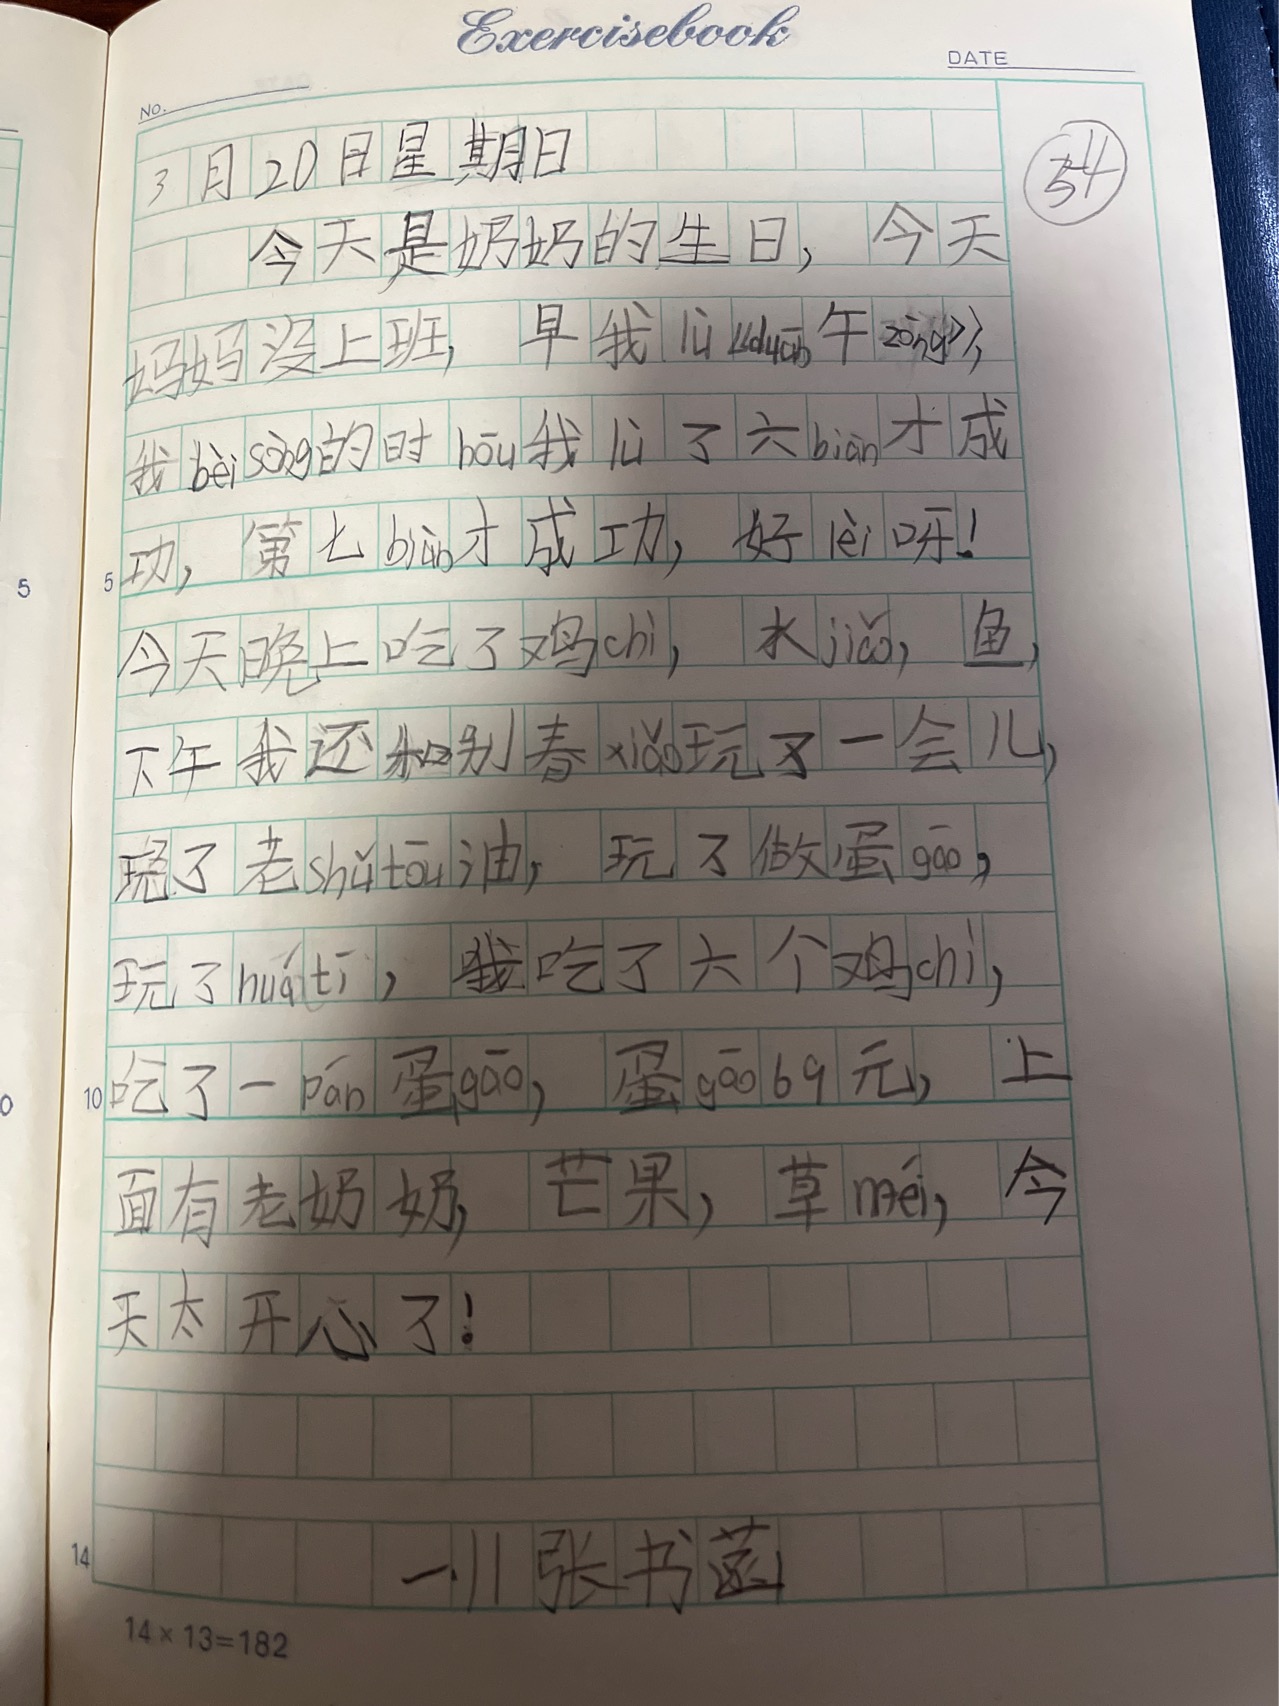 Exercisebook
DATE
NO.
54
3月20日星期日
今天是奶奶的生日，今天
妈妈没上班，早我lù《duān午zòng》，
我bèi sòng的时hōu我lù了六biàn才成
功，第七biàn才成功，好lèi呀！
今天晚上吃了鸡chì，水jiǎo，鱼，
下午我还和别春xiǎo玩了一会儿，
晓了老shǔ tōu油，玩了做蛋gāo，
玩了huá tī，我吃了六个鸡chì，
吃了一pán蛋gāo，蛋gāo69元，上
面有老奶奶，芒果，草méi，今
天太开心了！
一.11张书菡
5
10
14
14×13=182
5
0